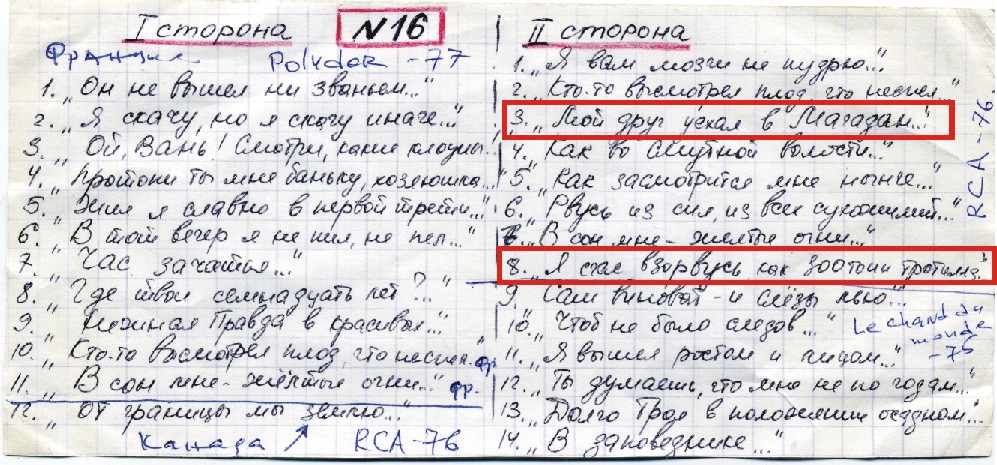 I сторона
N16
Франция Polydor - 77
1. „Он не вышел ни званьем..."
2. „Я скачу, но я скачу иначе..."
3. „Ой, Вань! Смотри, какие клоуны..!"
4. „Протопи ты мне баньку, хозяюшка..."
5. „Жил я славно в первой трети..."
6. „В тот вечер я не пил, не пел..."
7. „Час зачатья..."
8. „Где твои семнадцать лет?..."
9. „Нежная Правда в красивых..."
10. „Кто-то высмотрел плод, что неспел..." фр.
11. „В сон мне - жёлтые огни..." фр.
12. „От границы мы Землю..."
Канада RCA - 76
II сторона
1. „Я вам мозги не пудрю..."
2. „Кто-то высмотрел плод, что неспел..."
3. „Мой друг уехал в Магадан..."
4. „Как во смутной волости..."
5. „Как засмотрится мне нынче..."
6. „Рвусь из сил, из всех сухожилий..."
7. „В сон мне - желтые огни..."
8. „Я стас взорвусь как 300 тонн тротила."
9. „Сам виноват - и слёзы лью..."
10. „Чтоб не было следов..."
11. „Я вышел ростом и лицом..."
12. „Ты думаешь, что мне не по годам..."
13. „Долго Троя в положении осадном..."
14. „В заповеднике..."
RCA - 76.
Le chant du
monde
- 75